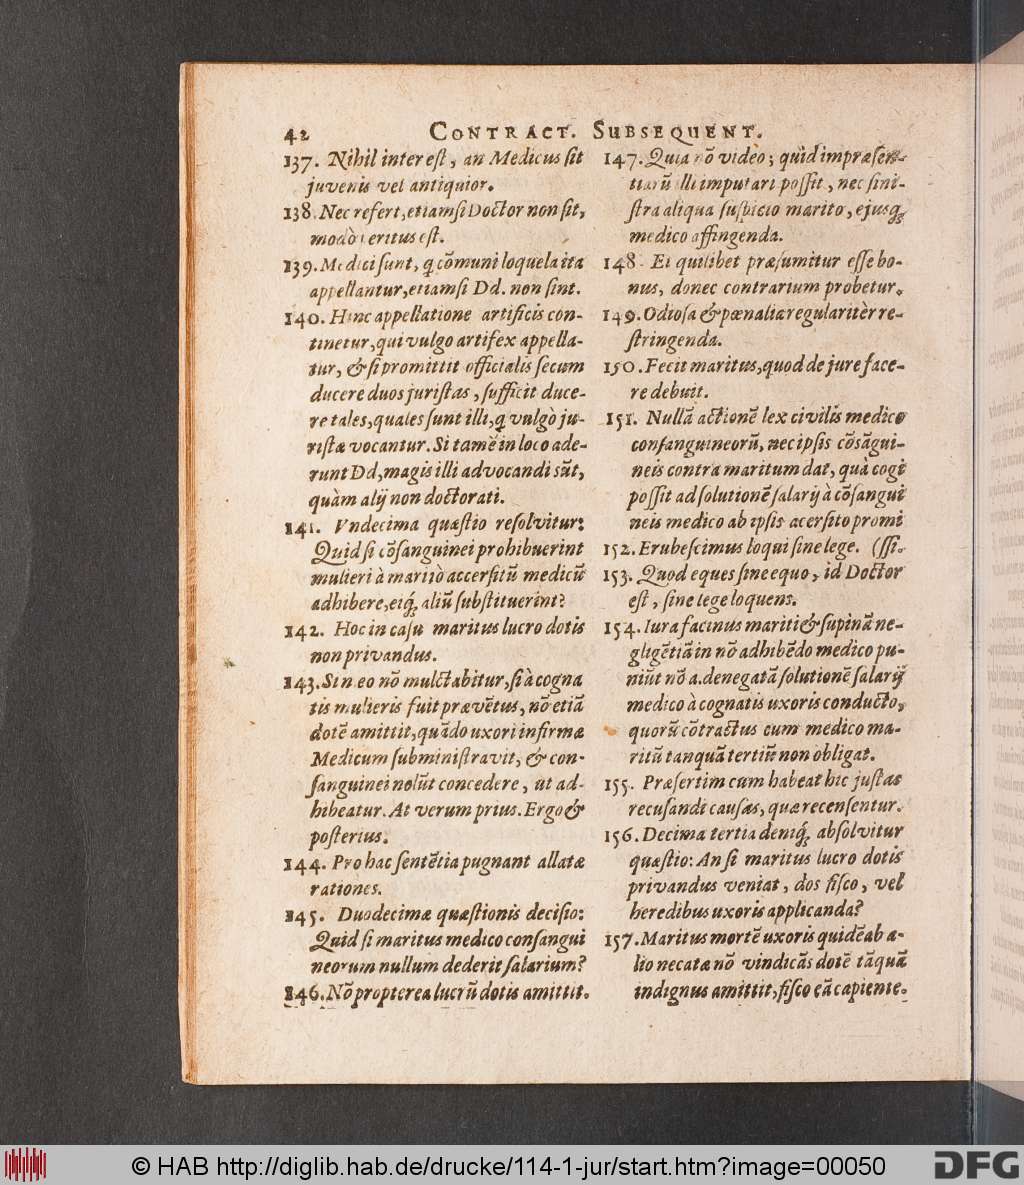 42 CONTRACT. SUBSEQUENT.
137. Nihil interest, an Medicus sit
juvenis vel antiquior.
138. Nec refert, etiamsi Doctor non sit,
modò peritus est.
139. Medici sunt, q̃ cõmuni loquela ita
appellantur, etiamsi Dd. non sint.
140. Hinc appellatione artificis con-
tinetur, qui vulgo artifex appella-
tur, & si promittit officialis secum
ducere duos juristas, sufficit duce-
re tales, quales sunt illi, q̃ vulgò ju-
ristæ vocantur. Si tamẽ in loco ade-
runt Dd, magis illi advocandi sũt,
quàm alij non doctorati.
141. Vndecima quæstio resolvitur:
Quid si cõsanguinei prohibuerint
mulieri à marito accersitũ medicũ
adhibere, eiq́; aliũ substituerint?
142. Hoc in casu maritus lucro dotis
non privandus.
143. Sin eo nõ mulctabitur, si à cogna
tis mulieris fuit prævẽtus, nõ etiã
dotẽ amittit, quãdo uxori infirmæ
Medicum subministravit, & con-
sanguinei nolũt concedere, ut ad-
hibeatur. At verum prius. Ergo &
posterius.
144. Pro hac sentẽtia pugnant allatæ
rationes.
145. Duodecimæ quæstionis decisio:
Quid si maritus medico consangui
neorum nullum dederit salarium?
146. Nõ propterea lucrũ dotis amittit.
147. Quia nõ video; quid impræsen-
tiarũ illi imputari possit, nec sini-
stra aliqua suspicio marito, ejusq́;
medico affingenda.
148. Et quilibet præsumitur esse bo-
nus, donec contrarium probetur.
149. Odiosa & pænalia regularitèr re-
stringenda.
150. Fecit maritus, quod de jure face-
re debuit.
151. Nullã actionẽ lex civilis medico
consanguineorũ, nec ipsis cõsãgui-
neis contra maritum dat, quà cogi
possit ad solutionẽ salarij à cõsangui
neis medico ab ipsis acersito promi
152. Erubescimus loqui sine lege. (ssi.
153. Quod eques sine equo, id Doctor
est, sine lege loquens.
154. Iura facinus mariti & supinã ne-
gligẽtiã in nõ adhibẽdo medico pu-
niũt nõ a. denegatã solutionẽ salarij
medico à cognatis uxoris conducto,
quorũ cõtractus cum medico ma-
ritũ tanquã tertiũ non obligat.
155. Præsertim cum habeat hic justas
recusandi causas, quæ recensentur.
156. Decima tertia deniq́; absolvitur
quæstio: An si maritus lucro dotis
privandus veniat, dos fisco, vel
heredibus uxoris applicanda?
157. Maritus mortẽ uxoris quidẽ ab a-
lio necatæ nõ vindicãs dotẽ tãquã
indignus amittit, fisco eã capiente.
© HAB http://diglib.hab.de/drucke/114-1-jur/start.htm?image=00050
DFG